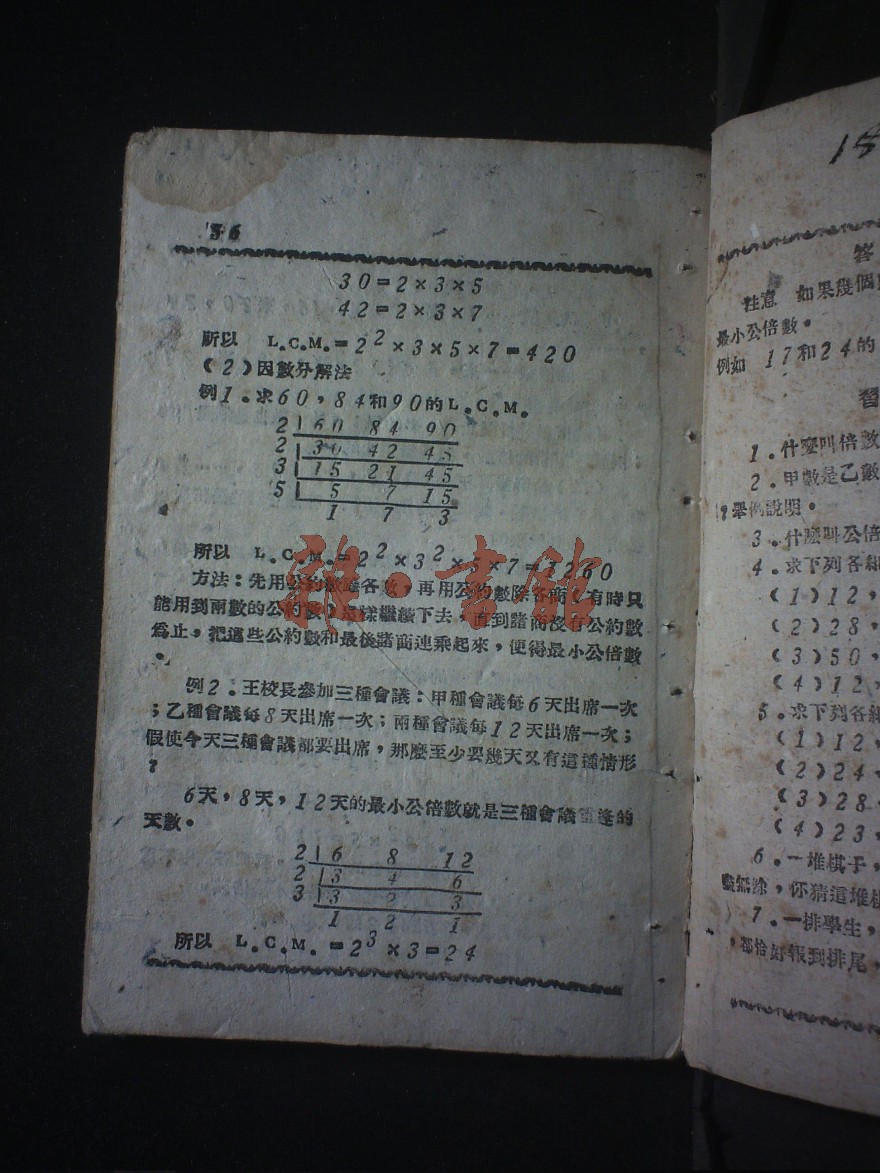 36
30=2×3×5
42=2×3×7
所以 L.C.M.=2²×3×5×7=420
(2)因數分解法
例1.求60,84和90的L.C.M.
2|60 84 90
2|30 42 45
3|15 21 45
5|5 7 15
1 7 3
所以 L.C.M.=2²×3²× ×7=1260
方法:先用公約數除各數,再用公約數除各商(有時只
能用到兩數的公約數)這樣繼續下去,直到諸商沒有公約數
爲止,把這些公約數和最後諸商連乘起來,便得最小公倍數
。
例2.王校長參加三種會議:甲種會議每6天出席一次
;乙種會議每8天出席一次;兩種會議每12天出席一次;
假使今天三種會議都要出席,那麼至少要幾天又有這種情形
?
6天,8天,12天的最小公倍數就是三種會議重逢的
天數。
2|6 8 12
2|3 4 6
3|3 2 3
1 2 1
所以 L.C.M.=2³×3=24
雜·書館
15
答
注意 如果幾個
最小公倍數。
例如 17和24的
習
1.什麼叫倍數
2.甲數是乙數
?舉例說明。
3.什麼叫公倍
4.求下列各組
(1)12,
(2)28,
(3)50,
(4)12,
5.求下列各組
(1)12,
(2)24,
(3)28,
(4)23,
6.一堆棋子,
無餘,你猜這堆棋
7.一排學生,
,都恰好報到排尾,